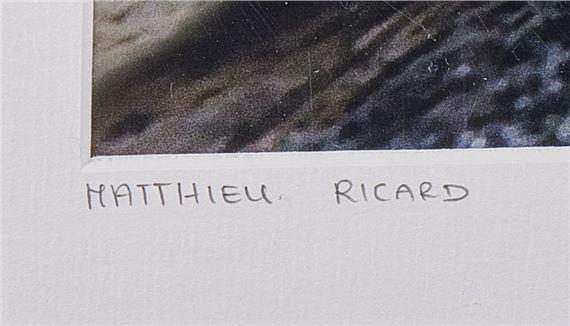 MATTHIEU. RICARD